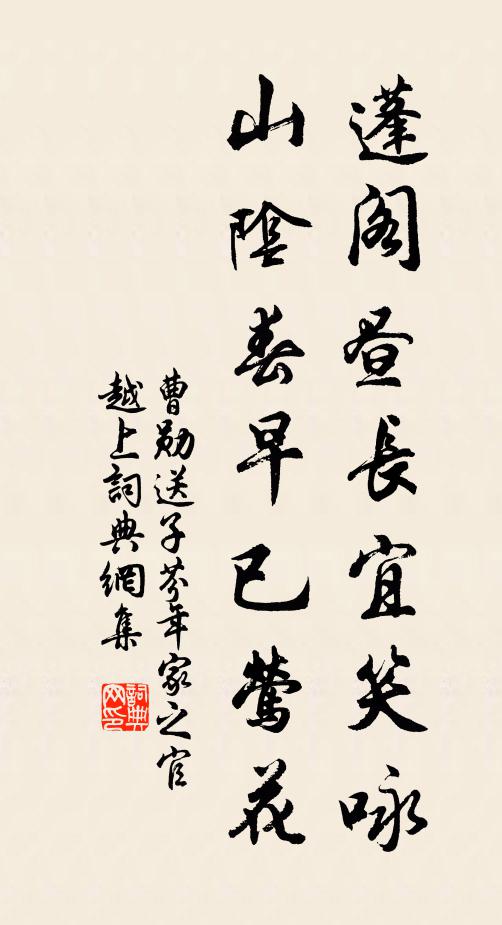 蓬閣晝長宜笑咏
山陰春早已鶯花
曹勛送子芬年家之官
越上詞典網集
詞典网印